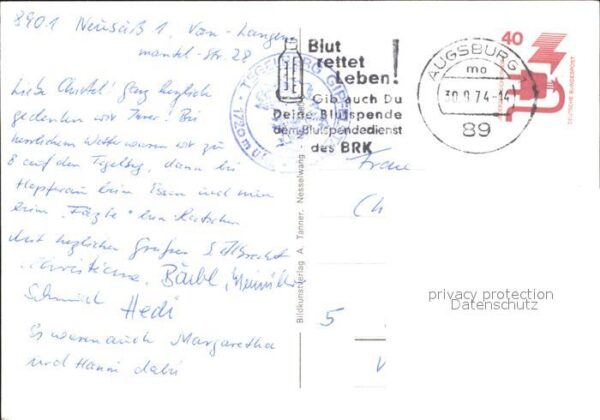 8901 Neusäß 1, Von-Langen-
mantel-Str. 28
Liebe Christel! Ganz herzlich
gedenken wir Ihrer! Bei
herrlichem Wetter waren wir zu
8 auf dem Tegelberg, dann bei
beim Essen und nun
beim
Mit herzlichen Grüßen
Christiane, Bärbl,
Schmid Hedi
Es waren auch Margaretha
und Hanni dabei
TEGELBERG GIPFEL
1720 m
Blut
rettet
Leben!
Gib auch Du
Deine Blutspende
dem Blutspendedienst
des BRK
AUGSBURG 1
mo
30.9.74-14
89
40
DEUTSCHE BUNDESPOST
Bildkunstverlag A. Tanner, Nesselwang
Frau
Ch
5
privacy protection
Datenschutz